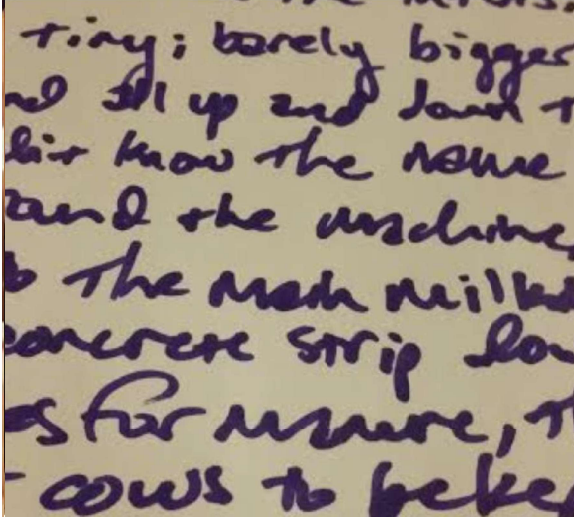 tiny; barely bigger
all up and down
know the name
and the machine
the main milk
concrete strip
es for manure, th
cows to be kep